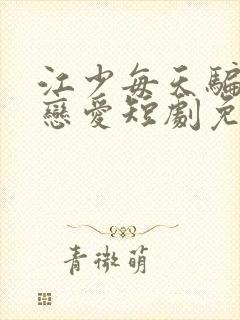 江少每天騙
戀愛短劇免
青微萌